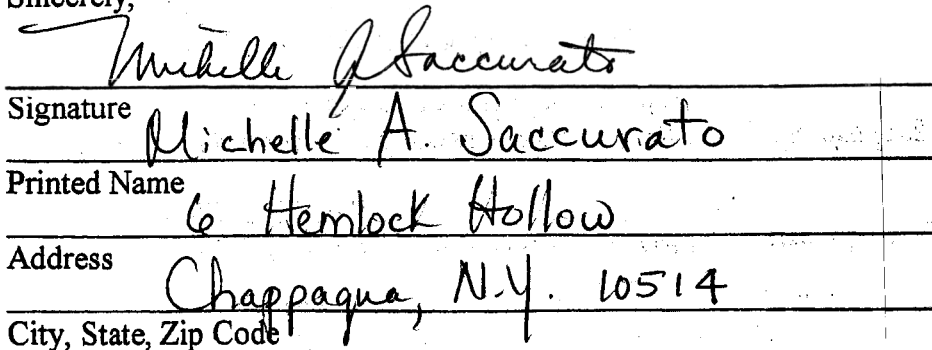 Sincerely,
Michelle A Saccurato
Signature
Michelle A. Saccurato
Printed Name
6 Hemlock Hollow
Address
Chappaqua, N.Y. 10514
City, State, Zip Code